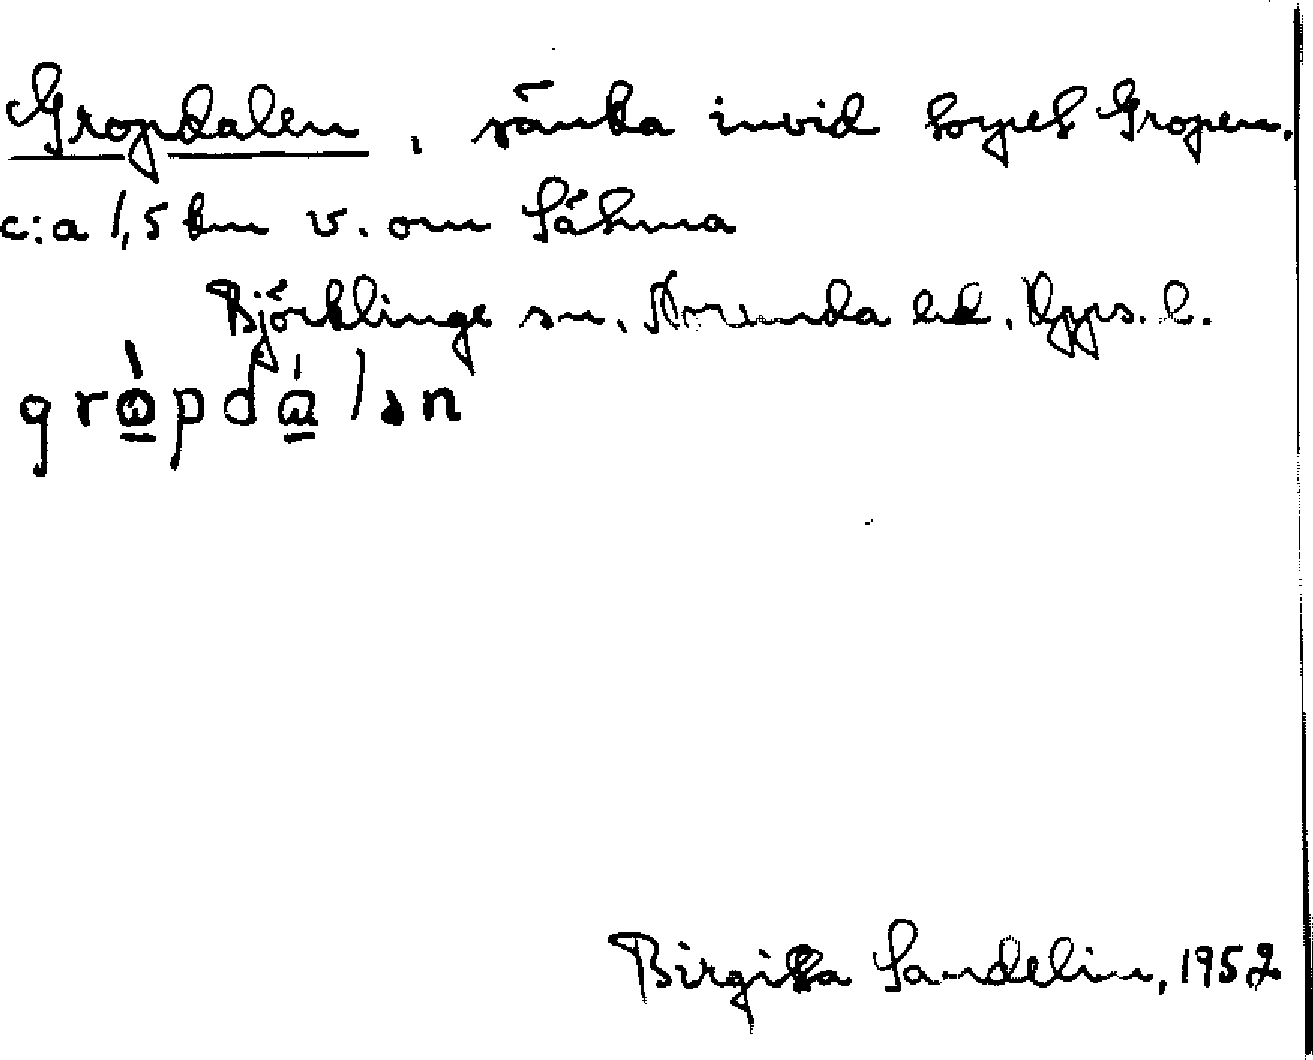 Gropdalen, sänka invid torpet Gropen.
c:a 1,5 km v. om Sähma
Björklinge sn. Norunda hd. Upps. l.
Birgitta Sandelin, 1952